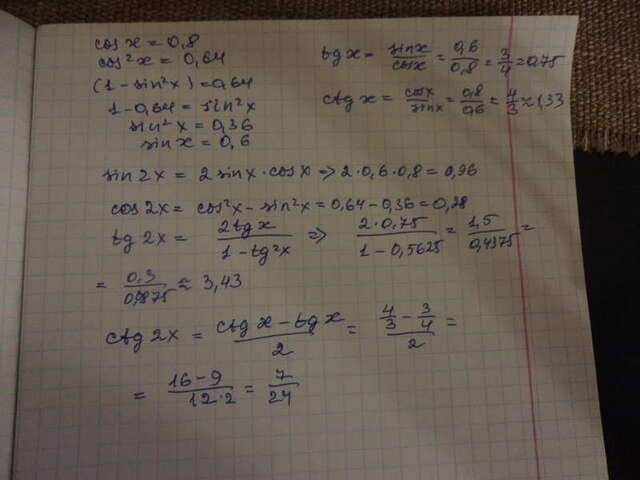 cos x = 0,8
cos²x = 0,64
(1 - sin²x) = 0,64
1 - 0,64 = sin²x
sin²x = 0,36
sin x = 0,6
tg x = sinx/cosx = 0,6/0,8 = 3/4 = 0,75
ctg x = cosx/sinx = 0,8/0,6 = 4/3 ≈ 1,33
sin 2x = 2 sinx · cosx ⇒ 2 · 0,6 · 0,8 = 0,96
cos 2x = cos²x - sin²x = 0,64 - 0,36 = 0,28
tg 2x = 2tgx/1 - tg²x ⇒ 2 · 0,75/1 - 0,5625 = 1,5/0,4375 =
= 0,3/0,0875 ≈ 3,43
ctg 2x = ctg x - tg x/2 = 4/3 - 3/4/2 =
= 16 - 9/12 · 2 = 7/24